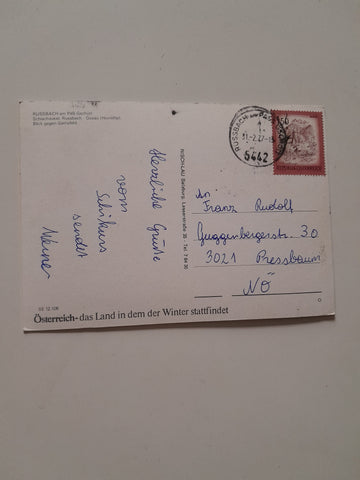 RUSSBACH am Paß Gschütt
Schischaukel Russbach - Gosau (Hornlifte)
Blick gegen Gamsfeld
Herzliche Grüße
vom
Schikurs
sendet
Werner
Salzburg, Lasserstraße 35 - Tel. 7 64 30
RUSSBACH
5442
REPUBLIK ÖSTERREICH
An
Franz Rudolf
Guggenbergerstr. 30
3021 Pressbaum
NÖ
Österreich - das Land in dem der Winter stattfindet